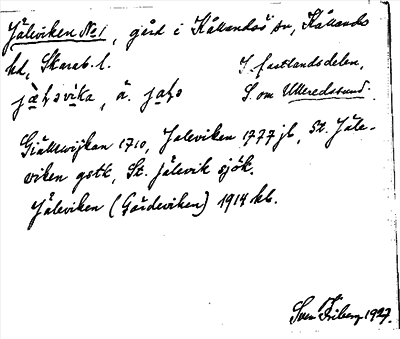 Jäleviken No 1, gård i Kållandsö sn, Kållands
hd, Skarab. l. I. fastlandsdelen,
S. om Ulleredssund.
Giällewijkan 1710, Jaleviken 1777 jb, St. Jäle-
viken gstk, St. Jälevik sjök.
Jäleviken (Gårdeviken) 1914 kb.
Sven Friberg 1927.